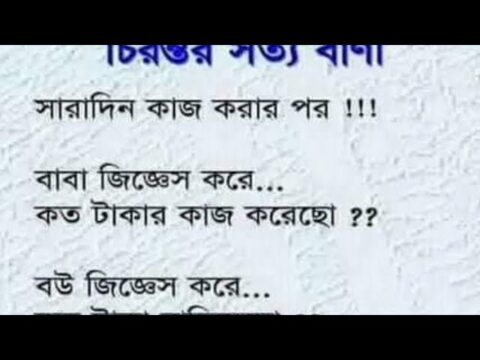 চিরন্তর সত্য বাণী
সারাদিন কাজ করার পর !!!
বাবা জিজ্ঞেস করে...
কত টাকার কাজ করেছো ??
বউ জিজ্ঞেস করে...